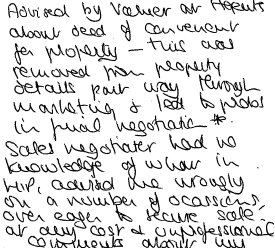 Advised by Valuer at
about deed of covenant
for property - this was
removed from property
details part way through
marketing & lead to probs
in final negotiation *.
Sales negotiater had no
knowledge of what in
HIP, advised me wrongly
on a number of ocassions,
over eager to secure sale -
at any cost & unprofessional
comments about my